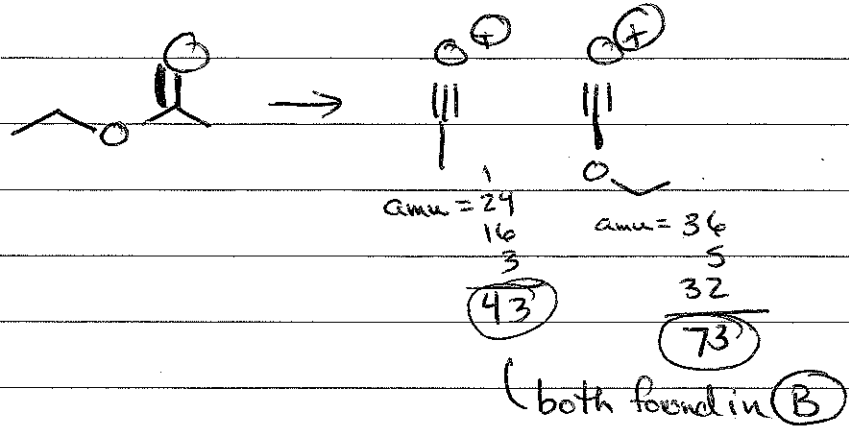 O +
O +
O
O
1
amu = 24
16
3
43
amu = 36
5
32
73
both found in B